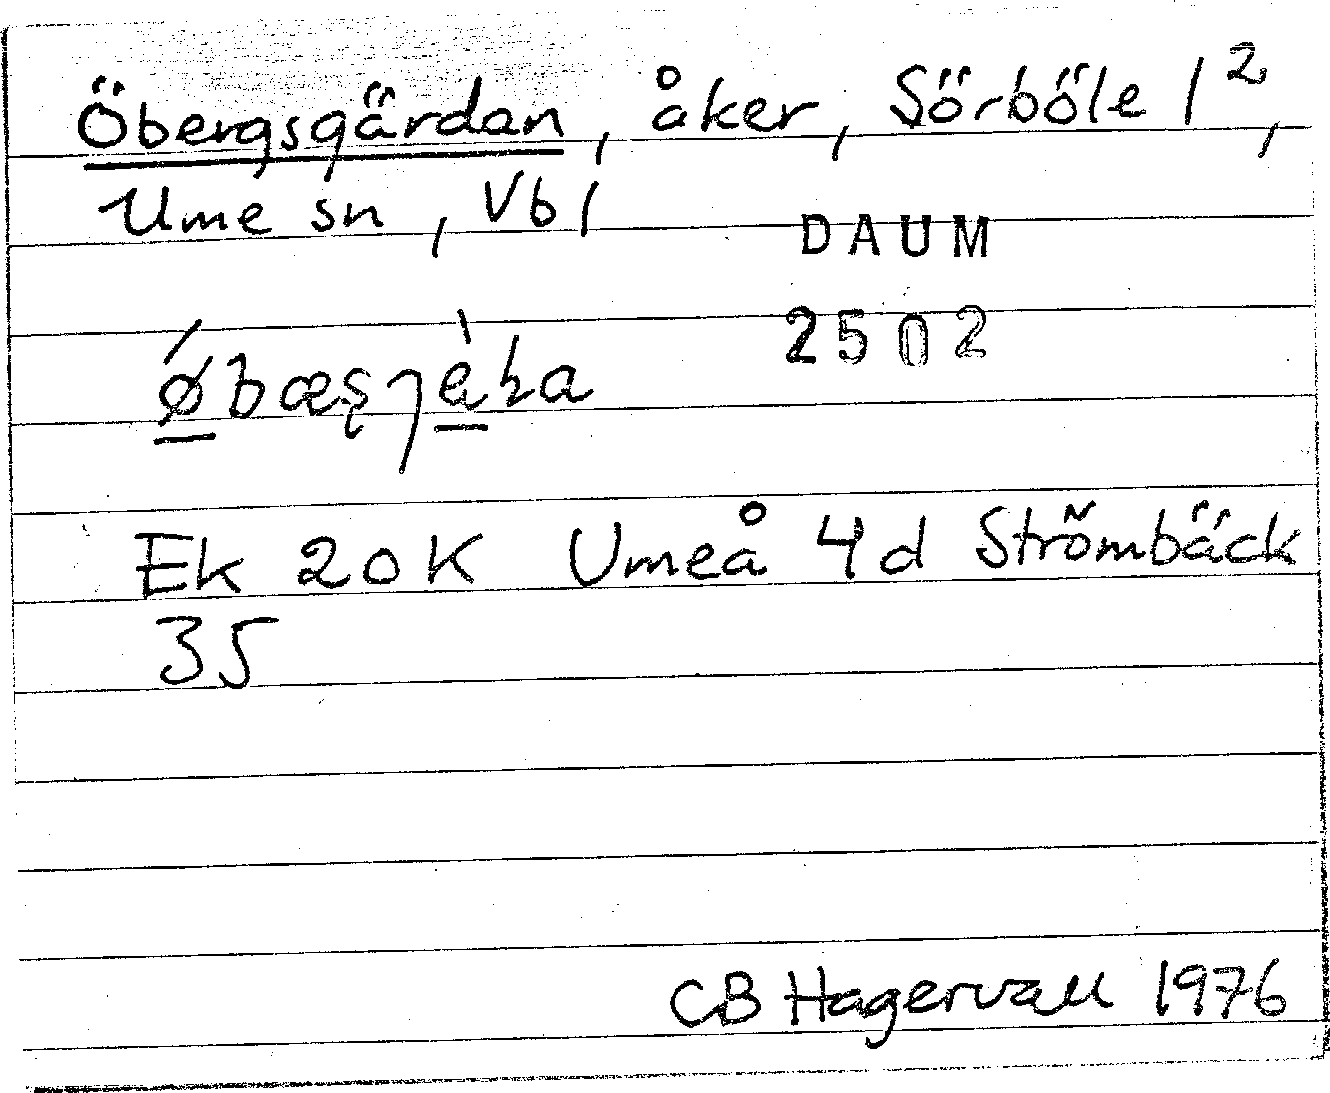 Öbergsgärdan, åker, Sörböle 1²,
Ume sn, Vbl
DAUM
2502
Ek 20K Umeå 4d Strömbäck
35
CB Hagervall 1976